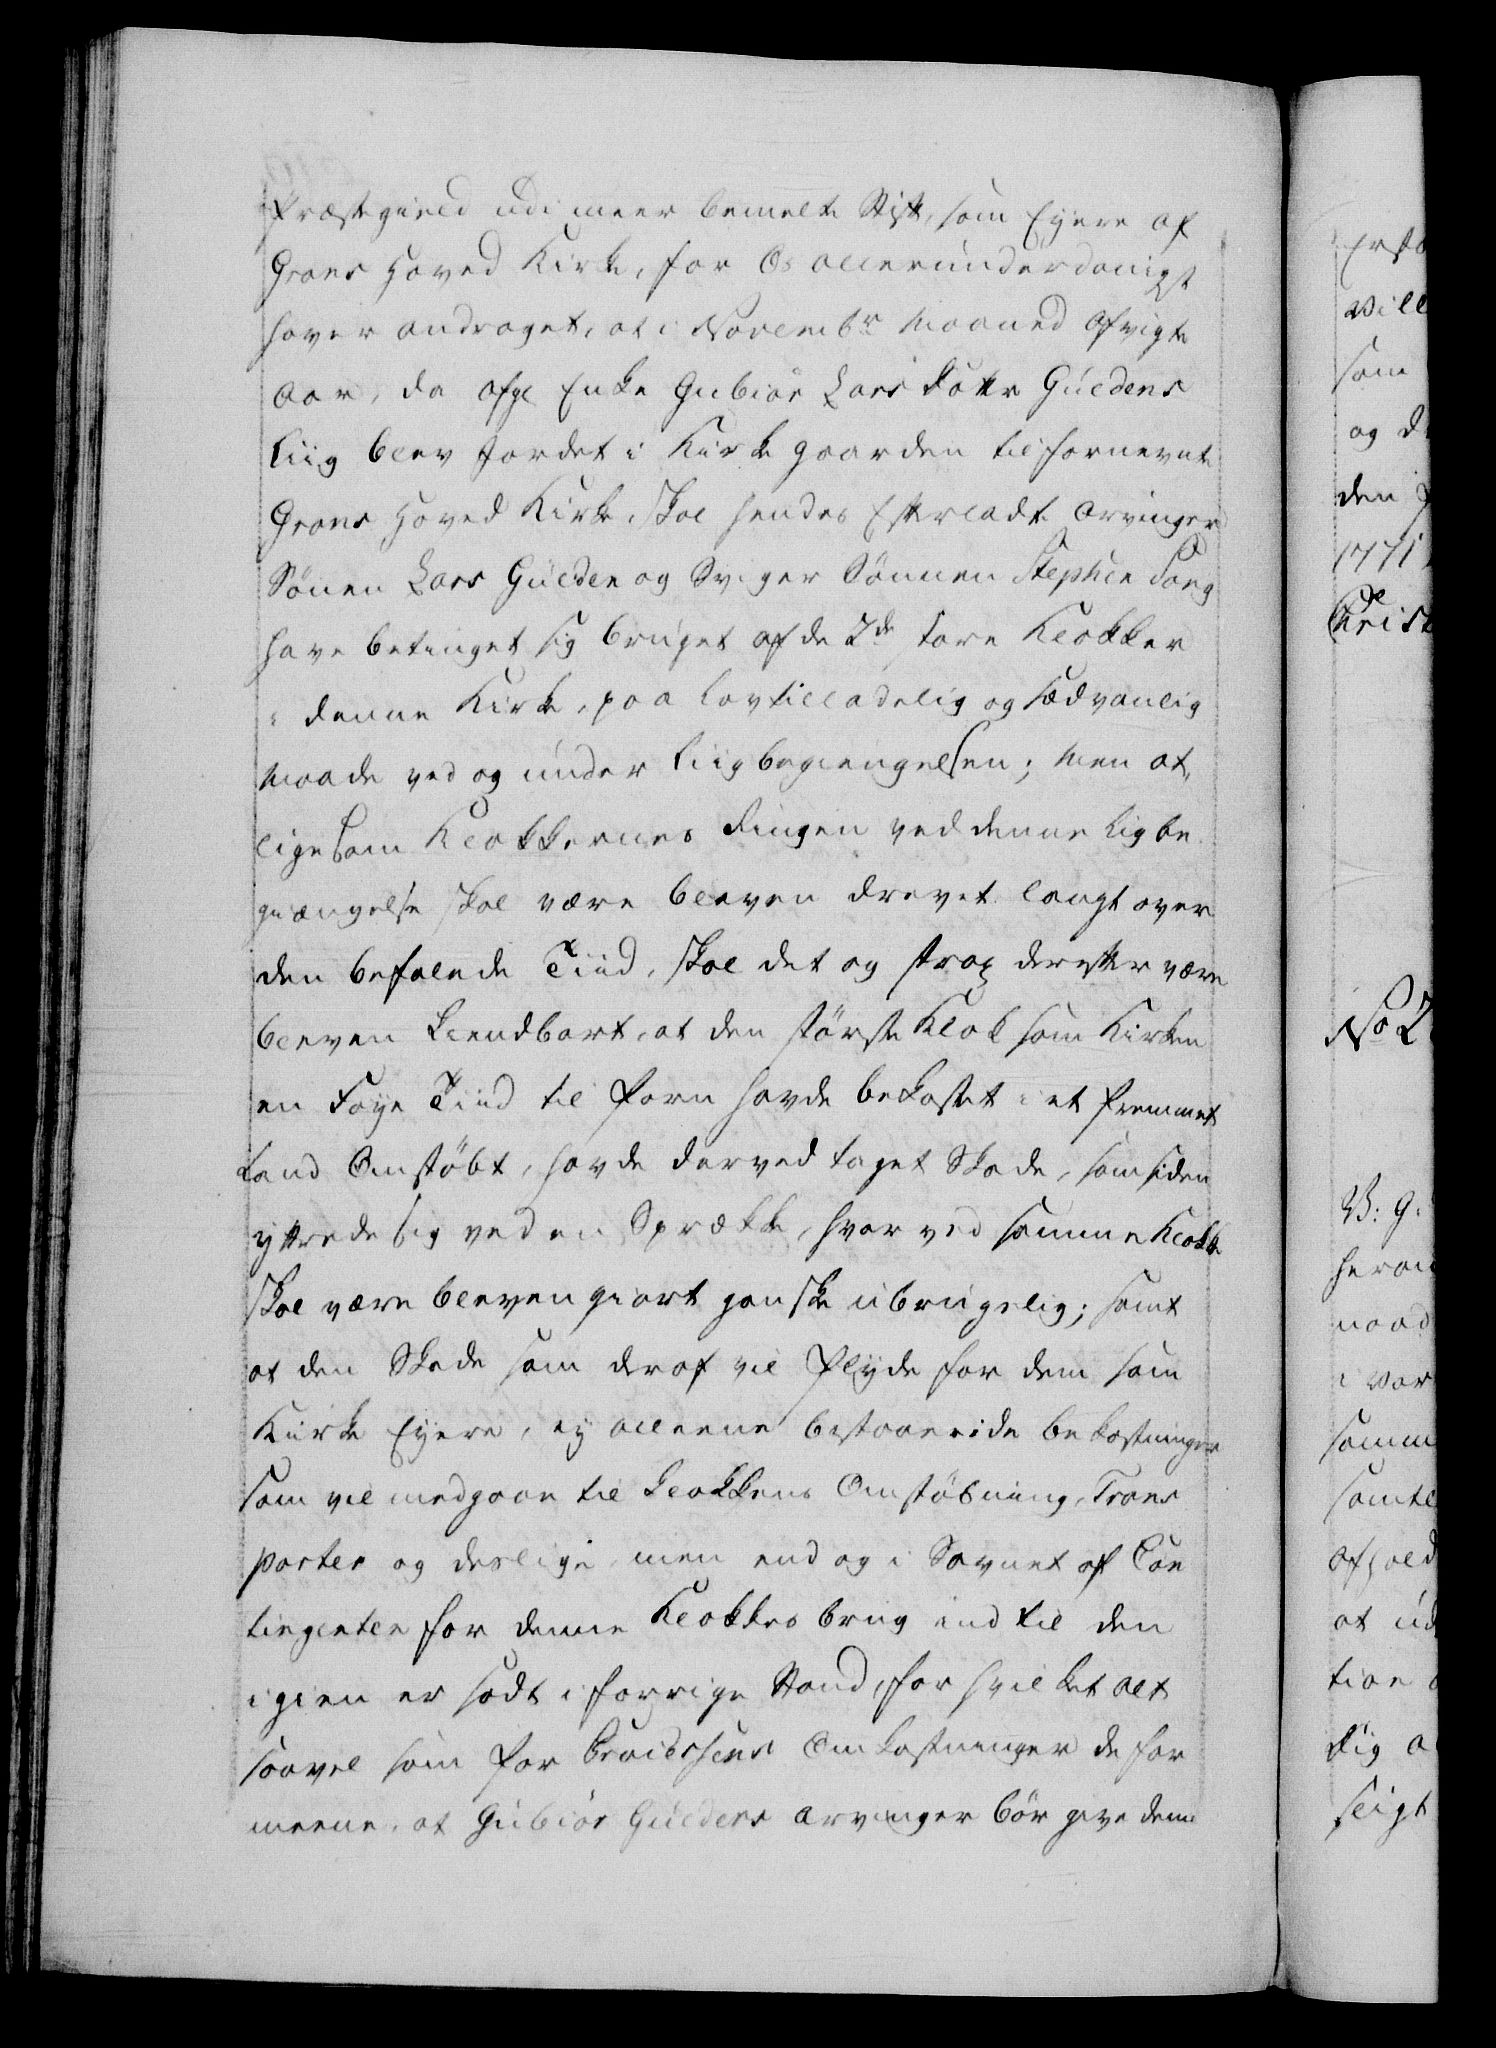 Præstegield udi meer bemelte Stift, som Eyere af
Grans Hoved Kirke, for Os allerunderdanigst
haver andraget, at i Novembr Maaned afvigte
Aar, da afg. Enke Gubiör Lars dotter Guldens
Liig blev jordet i Kirke gaarden til fornevnte
Grans Hoved Kirke, skal hendes Efterladte Arvinger
Sönen Lars Gulden og Sviger Sönnen Stephen Tong
have betinget sig bruget af de 2de store Klokker
i denne Kirke, paa lovtilladelig og sædvanlig
Maade ved og under Liigbegiengelsen; Men at,
ligesom Klokkernes Ringen ved denne Ligbe
giængelse skal være bleven drevet langt over
den befalede Tiid, skal det og strax derefter være
bleven kiendbart, at den störste Klok som Kirken
en Föye Tiid til forn havde bekostet i et fremmet
Land Omstöbt, havde derved taget Skade, som siden
yttrede sig ved en Sprække, hvor ved samme Klokke
skal være bleven giort ganske ubrugelig; samt
at den Skade som deraf vil flyde for dem som
Kirke Eyere, ey alleene bestaaer i de bekostninger
som vil medgaae til Klokkens Omstöbning, Trans
porter og deslige, men end og i Savnet af Con
tingenten for denne Klokkes brug ind til den
igien er sadt i forrige Stand, for hvilket alt
saavel som for Omkostninger de for
meene, at Gubiör Guldens Arvinger bör give dem